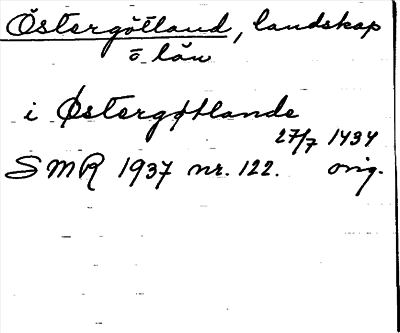 Östergötland, landskap
o län
i Østergøtlande
27/7 1434
SMR 1937 nr. 122. orig.